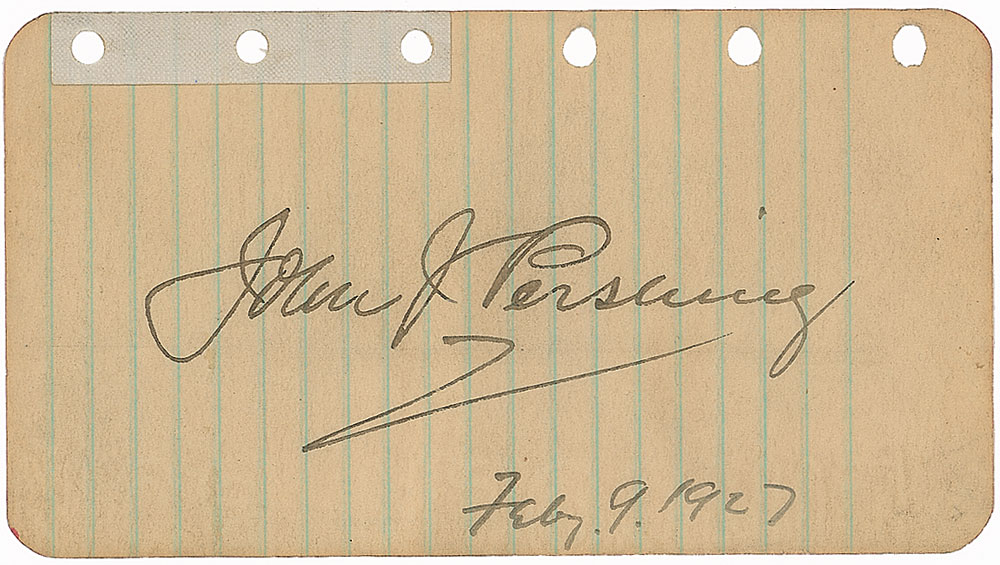 John J. Pershing
Feby. 9. 1927